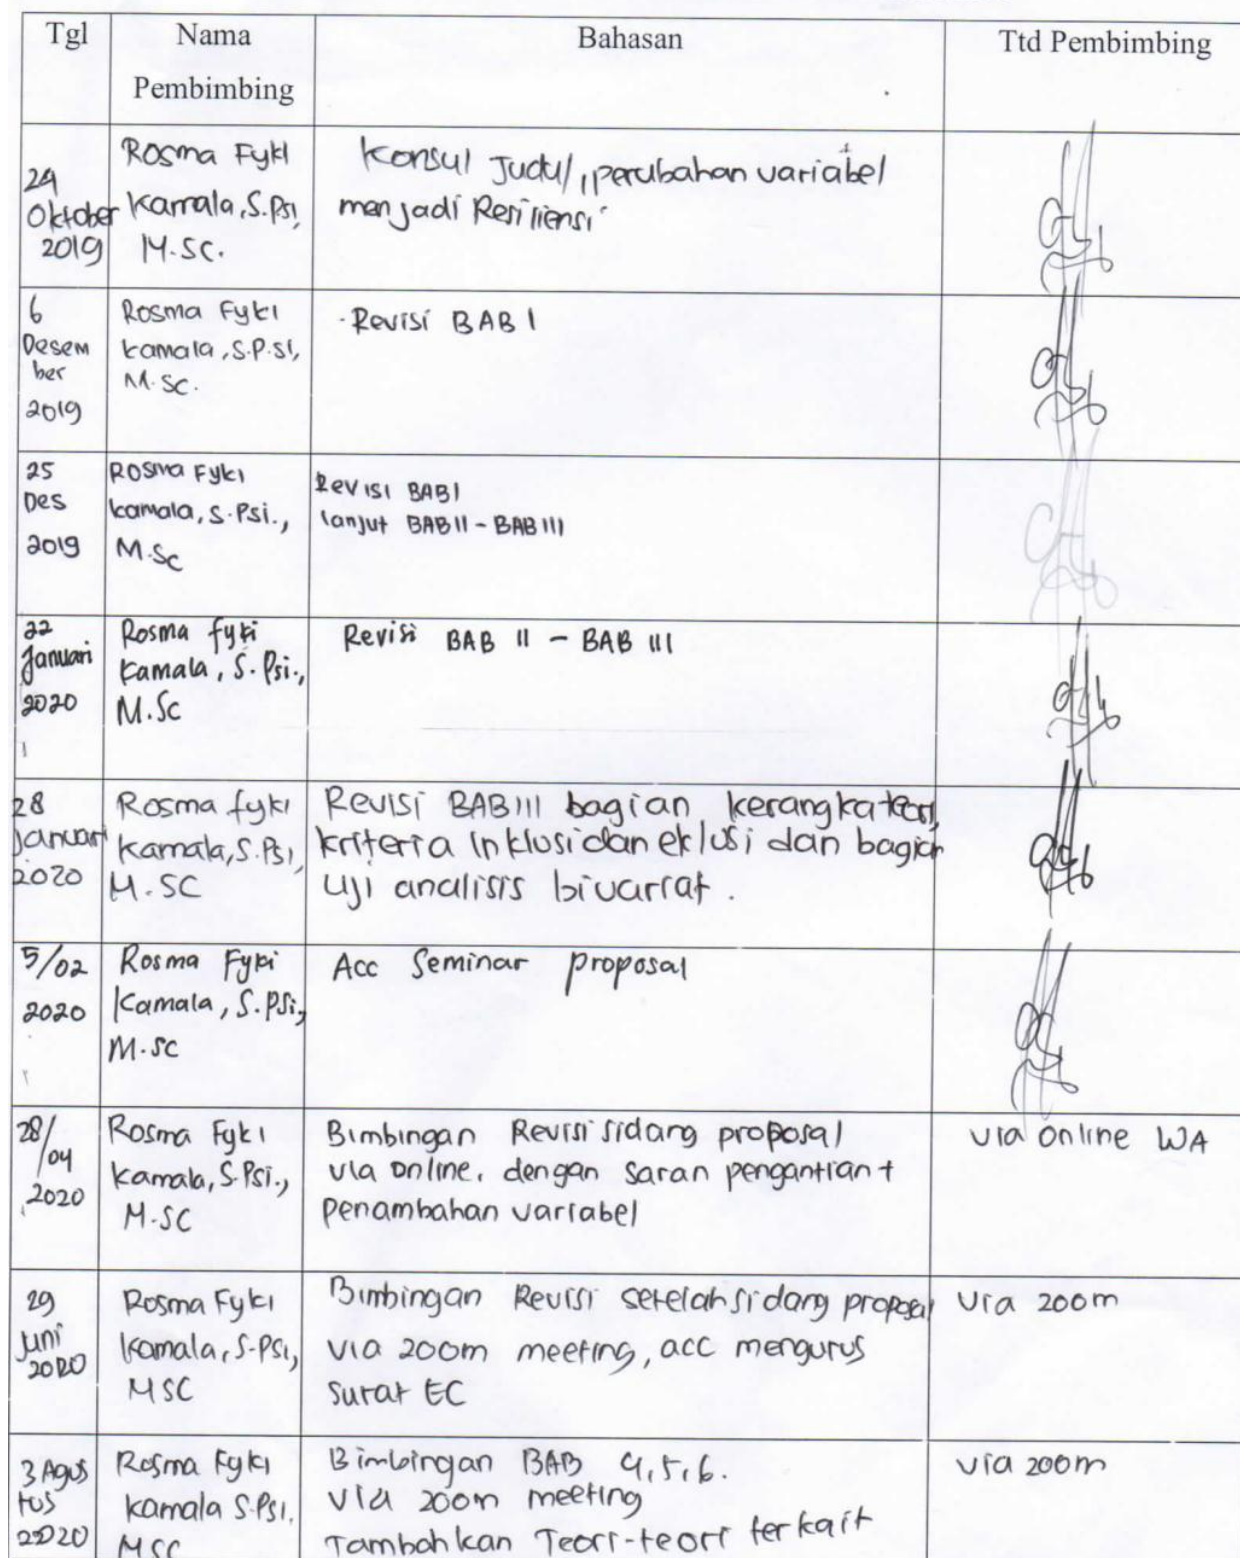 Tgl Nama Pembimbing Bahasan Ttd Pembimbing
29 Oktober 2019
Rosma Fyki
Kamala, S.Psi,
M.SC.
Konsul Judul, perubahan variabel
menjadi Resiliensi
6
Desem
ber
2019
Rosma Fyki
kamala, S.P.si,
M.SC.
- Revisi BAB I
25
Des
2019
Rosma Fyki
kamala, S.Psi.,
M.Sc
Revisi BAB I
lanjut BAB II - BAB III
22
Januari
2020
Rosma fyki
Kamala, S.Psi.,
M.Sc
Revisi BAB II - BAB III
28
Januari
2020
Rosma fyki
Kamala, S.Psi,
M.SC
Revisi BAB III bagian kerangka teori,
kriteria inklusi dan eklusi dan bagian
Uji analisis bivariat.
5/02
2020
Rosma Fyki
Kamala, S.Psi,
M.SC
Acc Seminar proposal
28/
04
2020
Rosma Fyki
Kamala, S.Psi.,
M.SC
Bimbingan Revisi sidang proposal
via online. dengan saran pengantian +
Penambahan variabel
via online WA
29
Juni
2020
Rosma Fyki
Kamala, S.PSi,
MSC
Bimbingan Revisi setelah sidang proposal
via zoom meeting, acc mengurus
Surat EC
Via zoom
3 Agus
tus
2020
Rosma Fyki
Kamala S.PSi,
MSC
Bimbingan BAB 4,5,6.
Via zoom meeting
Tambahkan Teori-teori terkait
via zoom